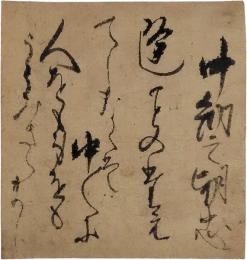 中納言朝忠
逢ことのたえ
てしなくは中〱に
人をも身をも
うらみさらまし